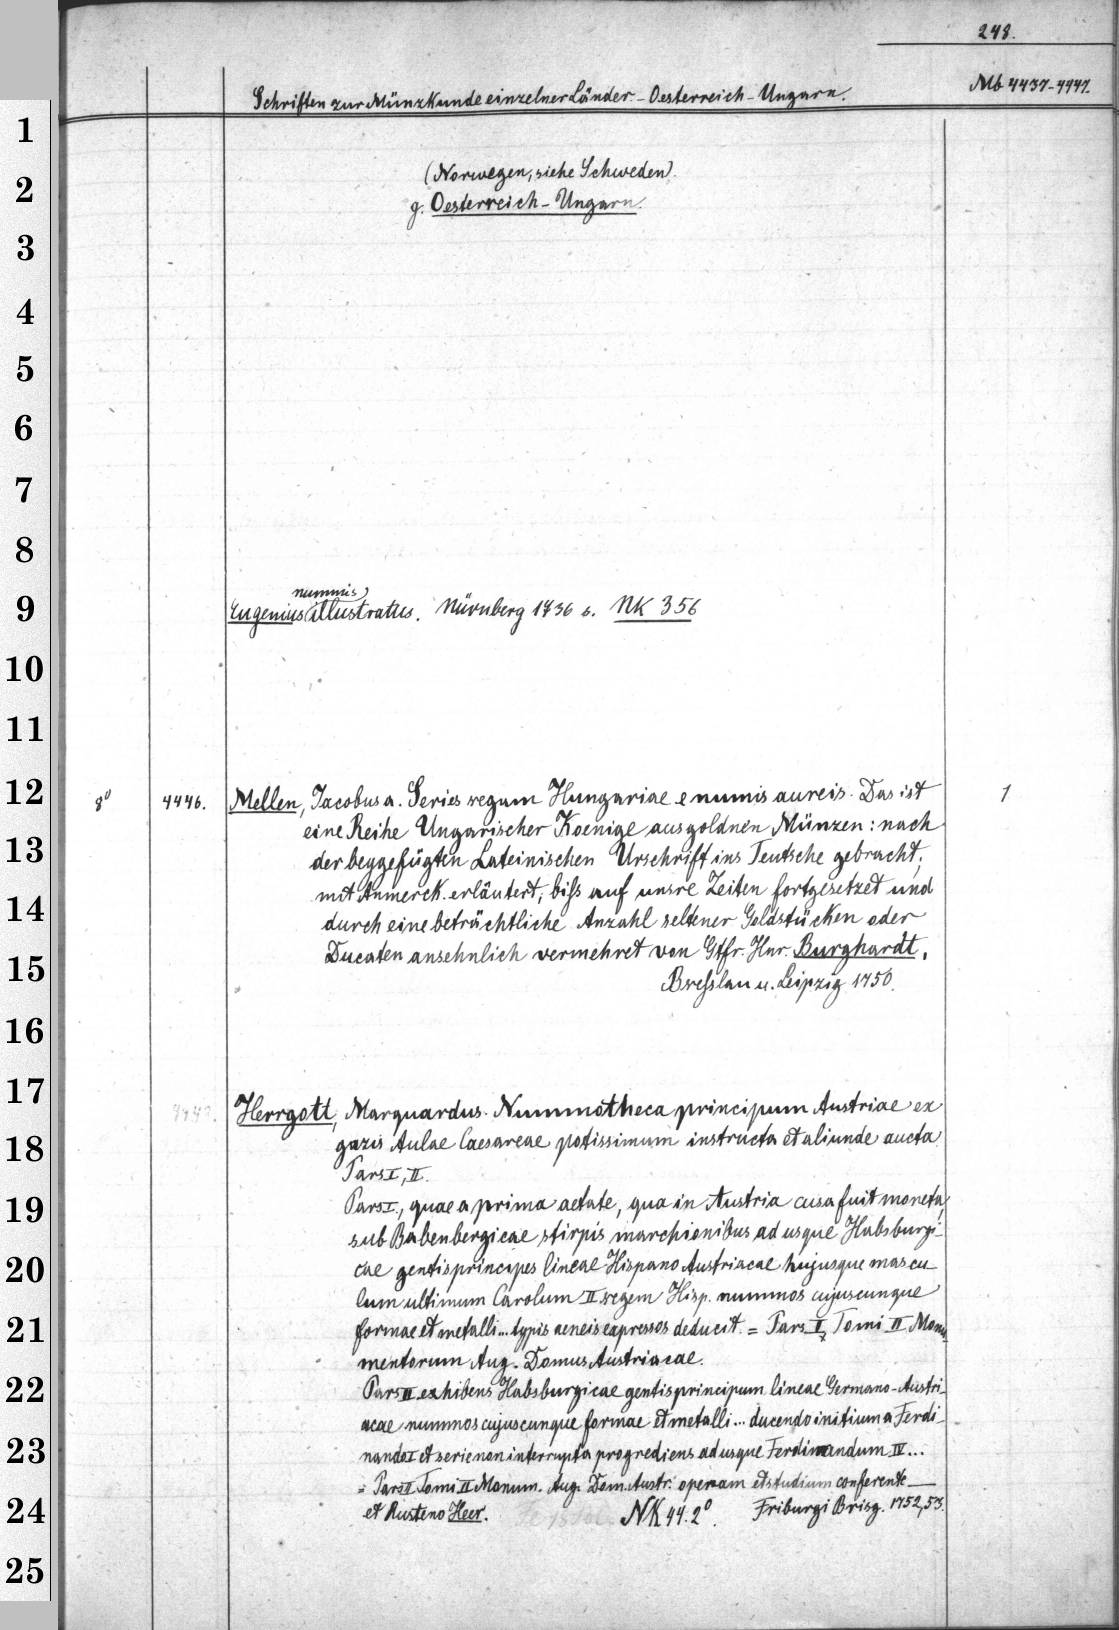 248.
Schriften zur Münzkunde einzelner Länder. - Oesterreich - Ungarn.
Mb 4437-4447.
(Norwegen, siehe Schweden).
g. Oesterreich - Ungarn.
nummis
Eugenius illustratus. Nürnberg 1736 s. NK 356
8° 4446. Mellen, Jacobus a. Series regum Hungariae e numis aureis. Das ist 1
eine Reihe Ungarischer Koenige aus goldnen Münzen: nach
der beygefügten Lateinischen Urschrift ins Teutsche gebracht,
mit Anmerck. erläutert, biss auf unsre Zeiten fortgesetzet und
durch eine beträchtliche Anzahl seltener Goldstücken oder
Ducaten ansehnlich vermehret von Gtfr. Hnr. Burghardt.
Bresslau u. Leipzig 1750.
4447. Herrgott, Marquardus. Nummotheca principum Austriae ex
gazis Aulae Caesareae potissimum instructa et aliunde aucta
Pars I, II.
Pars I., quae a prima aetate, qua in Austria cusa fuit moneta,
sub Babenbergicae stirpis marchionibus ad usque Habsburgi-
cae gentis principes lineae Hispano Austriacae hujusque mascu-
lum ultimum Carolum II. regem Hisp. nummos cujuscunque
formae et metalli... typis aeneis expressos deducit. = Pars I, Tomi II Monu
mentorum Aug. Domus Austriacae.
Pars II exhibens Habsburgicae gentis principum lineae Germano-Austri-
acae nummos cujuscunque formae et metalli... ducendo initium a Ferdi-
nando I et serie non interrupta progrediens ad usque Ferdinandum IV...
= Pars II Tomi II Monum. Aug. Dom. Austr. operam et studium conferente
et Rusteno Heer. NK 44. 2°. Friburgi Brisg. 1752, 53.
1
2
3
4
5
6
7
8
9
10
11
12
13
14
15
16
17
18
19
20
21
22
23
24
25